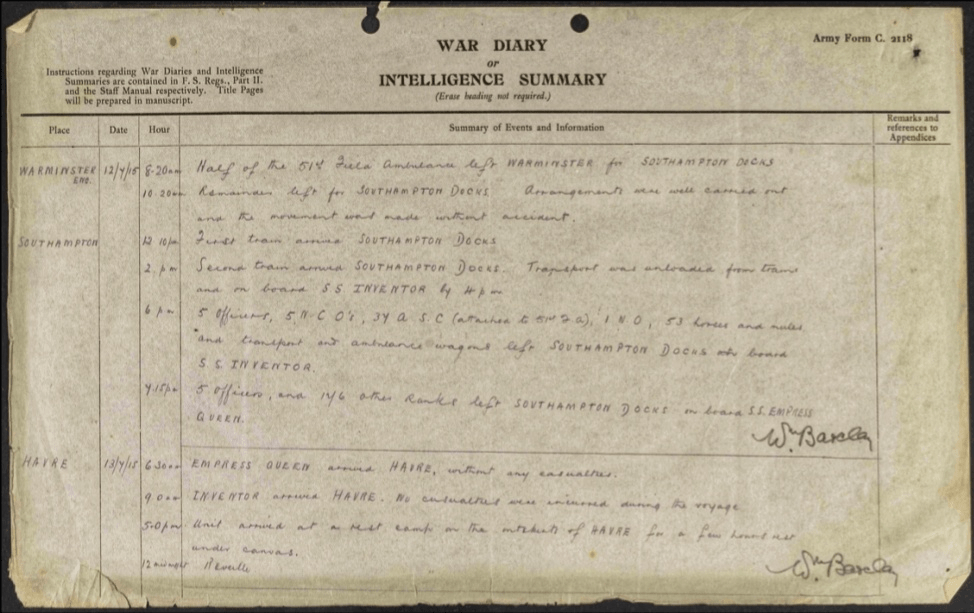 WAR DIARY
or
INTELLIGENCE SUMMARY
(Erase heading not required.)
Army Form C. 2118
Instructions regarding War Diaries and Intelligence
Summaries are contained in F. S. Regs., Part II.
and the Staff Manual respectively. Title Pages
will be prepared in manuscript.
Place Date Hour Summary of Events and Information Remarks and references to Appendices
WARMINSTER ENG. 12/7/15 8-20am Half of the 51st Field Ambulance left WARMINSTER for SOUTHAMPTON DOCKS
10 20am Remainder left for SOUTHAMPTON DOCKS Arrangements were well carried out
and the movement was made without accident.
SOUTHAMPTON 12 10pm First train arrived SOUTHAMPTON DOCKS
2. pm Second train arrived SOUTHAMPTON DOCKS. Transport was unloaded from trains
and on board S S INVENTOR by 4 pm
6 pm 5 Officers, 5 N C O's, 37 A S.C (attached to 51st F A), 1 N O, 53 horses and mules
and transport and ambulance wagons left SOUTHAMPTON DOCKS board
S S. INVENTOR.
7.15pm 5 officers, and 176 other Ranks left SOUTHAMPTON DOCKS on board S.S. EMPRESS
QUEEN.
Wm Barclay
HAVRE 13/7/15 6 30am EMPRESS QUEEN arrived HAVRE, without any casualties.
9 0am INVENTOR arrived HAVRE. No casualties were incurred during the voyage
5.0pm Unit arrived at a rest camp on the outskirts of HAVRE for a few hours rest
under canvas.
12 midnight Reveille
Wm Barclay